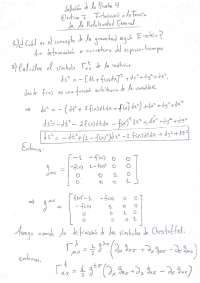 Solución de la Prueba 4
Electivo I: Introducción a la Teoría
de la Relatividad General
1) ¿Cuál es el concepto de la gravedad según Einstein?
La deformación o curvatura del espacio-tiempo
2) Calcular el símbolo Γ de la métrica
ds² = -[dt + f(x)dx]² + dx² + dy² + dz²
donde f(x) es una función arbitraria de la variable
⇒ ds² = -(dt² + 2f(x)dtdx + f(x)²dx²) + dx² + dy² + dz²
ds² = -dt² - 2f(x)dtdx - f(x)²dx² + dx² + dy² + dz²
ds² = -dt² + (1 - f(x)²)dx² - 2f(x)dtdx + dy² + dz²
Entonces
g_μν = [
-1 -f(x) 0 0
-f(x) 1-f(x)² 0 0
0 0 1 0
0 0 0 1 ]
⇒ g^μν = [
f(x)²-1 -f(x) 0 0
-f(x) 1 0 0
0 0 1 0
0 0 0 1 ]
Luego usando la definición de los símbolos de Christoffel